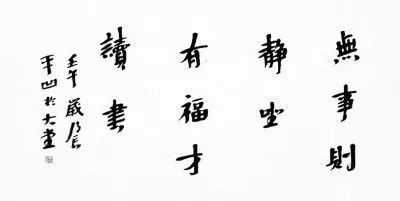 無事則
静坐
有福才
讀書
壬午歲
平凹於大堂